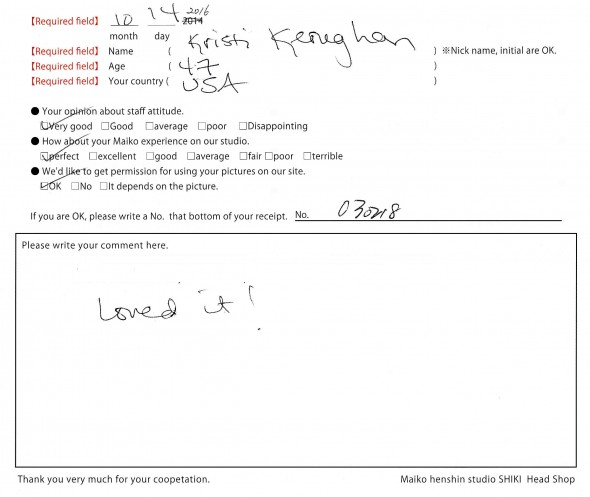 【Required field】 10 14 2016 2014
month day
【Required field】 Name ( Kristi Keneghan ) ※Nick name, initial are OK.
【Required field】 Age ( 47 )
【Required field】 Your country ( USA )
● Your opinion about staff attitude.
☑Very good □Good □average □poor □Disappointing
● How about your Maiko experience on our studio.
☑perfect □excellent □good □average □fair □poor □terrible
● We'd like to get permission for using your pictures on our site.
☑OK □No □It depends on the picture.
If you are OK, please write a No. that bottom of your receipt. No.
Please write your comment here.
Loved it!
Thank you very much for your coopetation. Maiko henshin studio SHIKI Head Shop